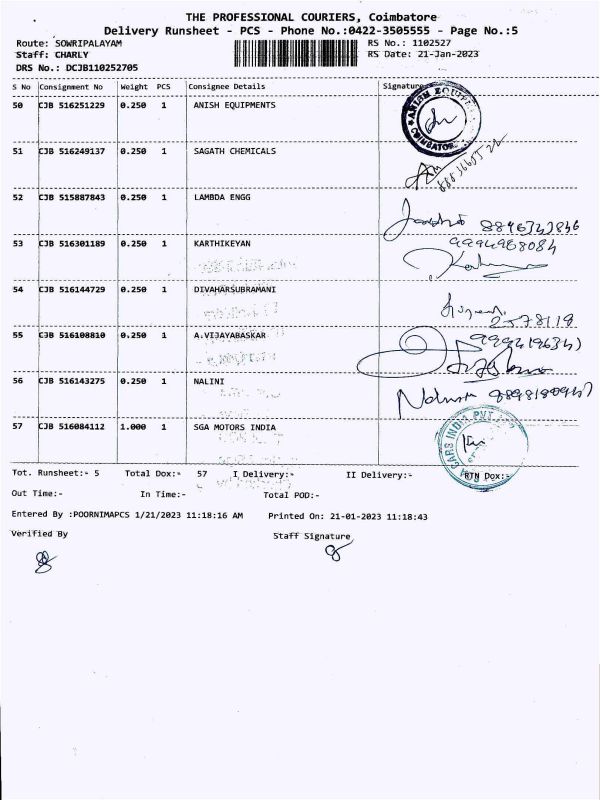 THE PROFESSIONAL COURIERS, Coimbatore
Delivery Runsheet - PCS - Phone No.:0422-3505555 - Page No.:5
Route: SOWRIPALAYAM RS No.: 1102527
Staff: CHARLY RS Date: 21-Jan-2023
DRS No.: DCJB110252705
S No Consignment No Weight PCS Consignee Details Signature
50 CJB 516251229 0.250 1 ANISH EQUIPMENTS
51 CJB 516249137 0.250 1 SAGATH CHEMICALS
52 CJB 515887843 0.250 1 LAMBDA ENGG
8846343846
53 CJB 516301189 0.250 1 KARTHIKEYAN 9994988084
54 CJB 516144729 0.250 1 DIVAHARSUBRAMANI
2578119
55 CJB 516108810 0.250 1 A.VIJAYABASKAR
56 CJB 516143275 0.250 1 NALINI
57 CJB 516084112 1.000 1 SGA MOTORS INDIA
Tot. Runsheet:- 5 Total Dox:- 57 I Delivery:- II Delivery:- RTN Dox:-
Out Time:- In Time:- Total POD:-
Entered By :POORNIMAPCS 1/21/2023 11:18:16 AM Printed On: 21-01-2023 11:18:43
Verified By Staff Signature